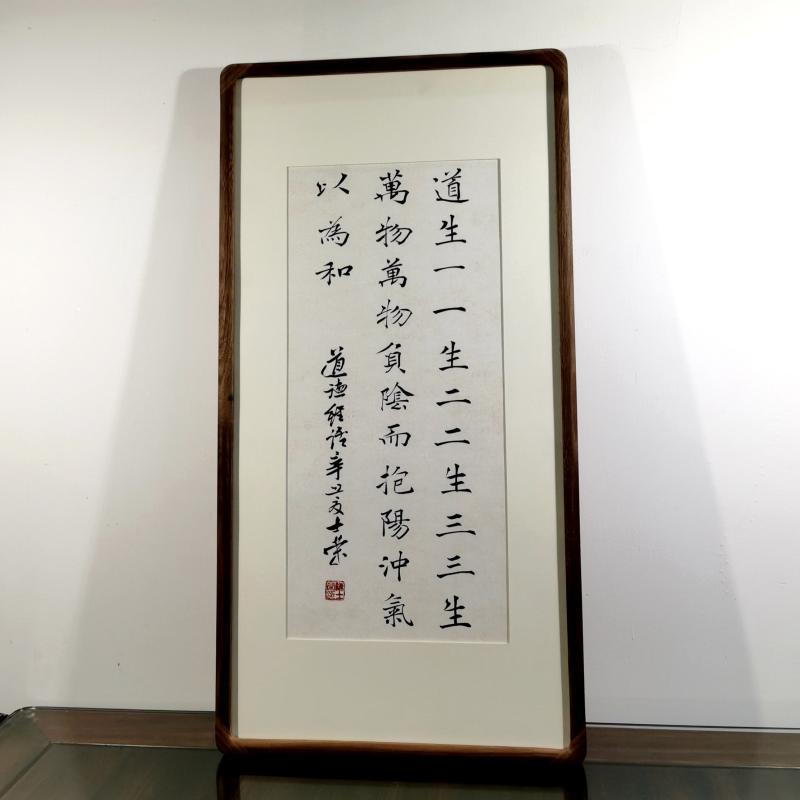 道生一一生二二生三三生
萬物萬物負陰而抱陽沖氣
以為和
道德經語辛丑夏士榮